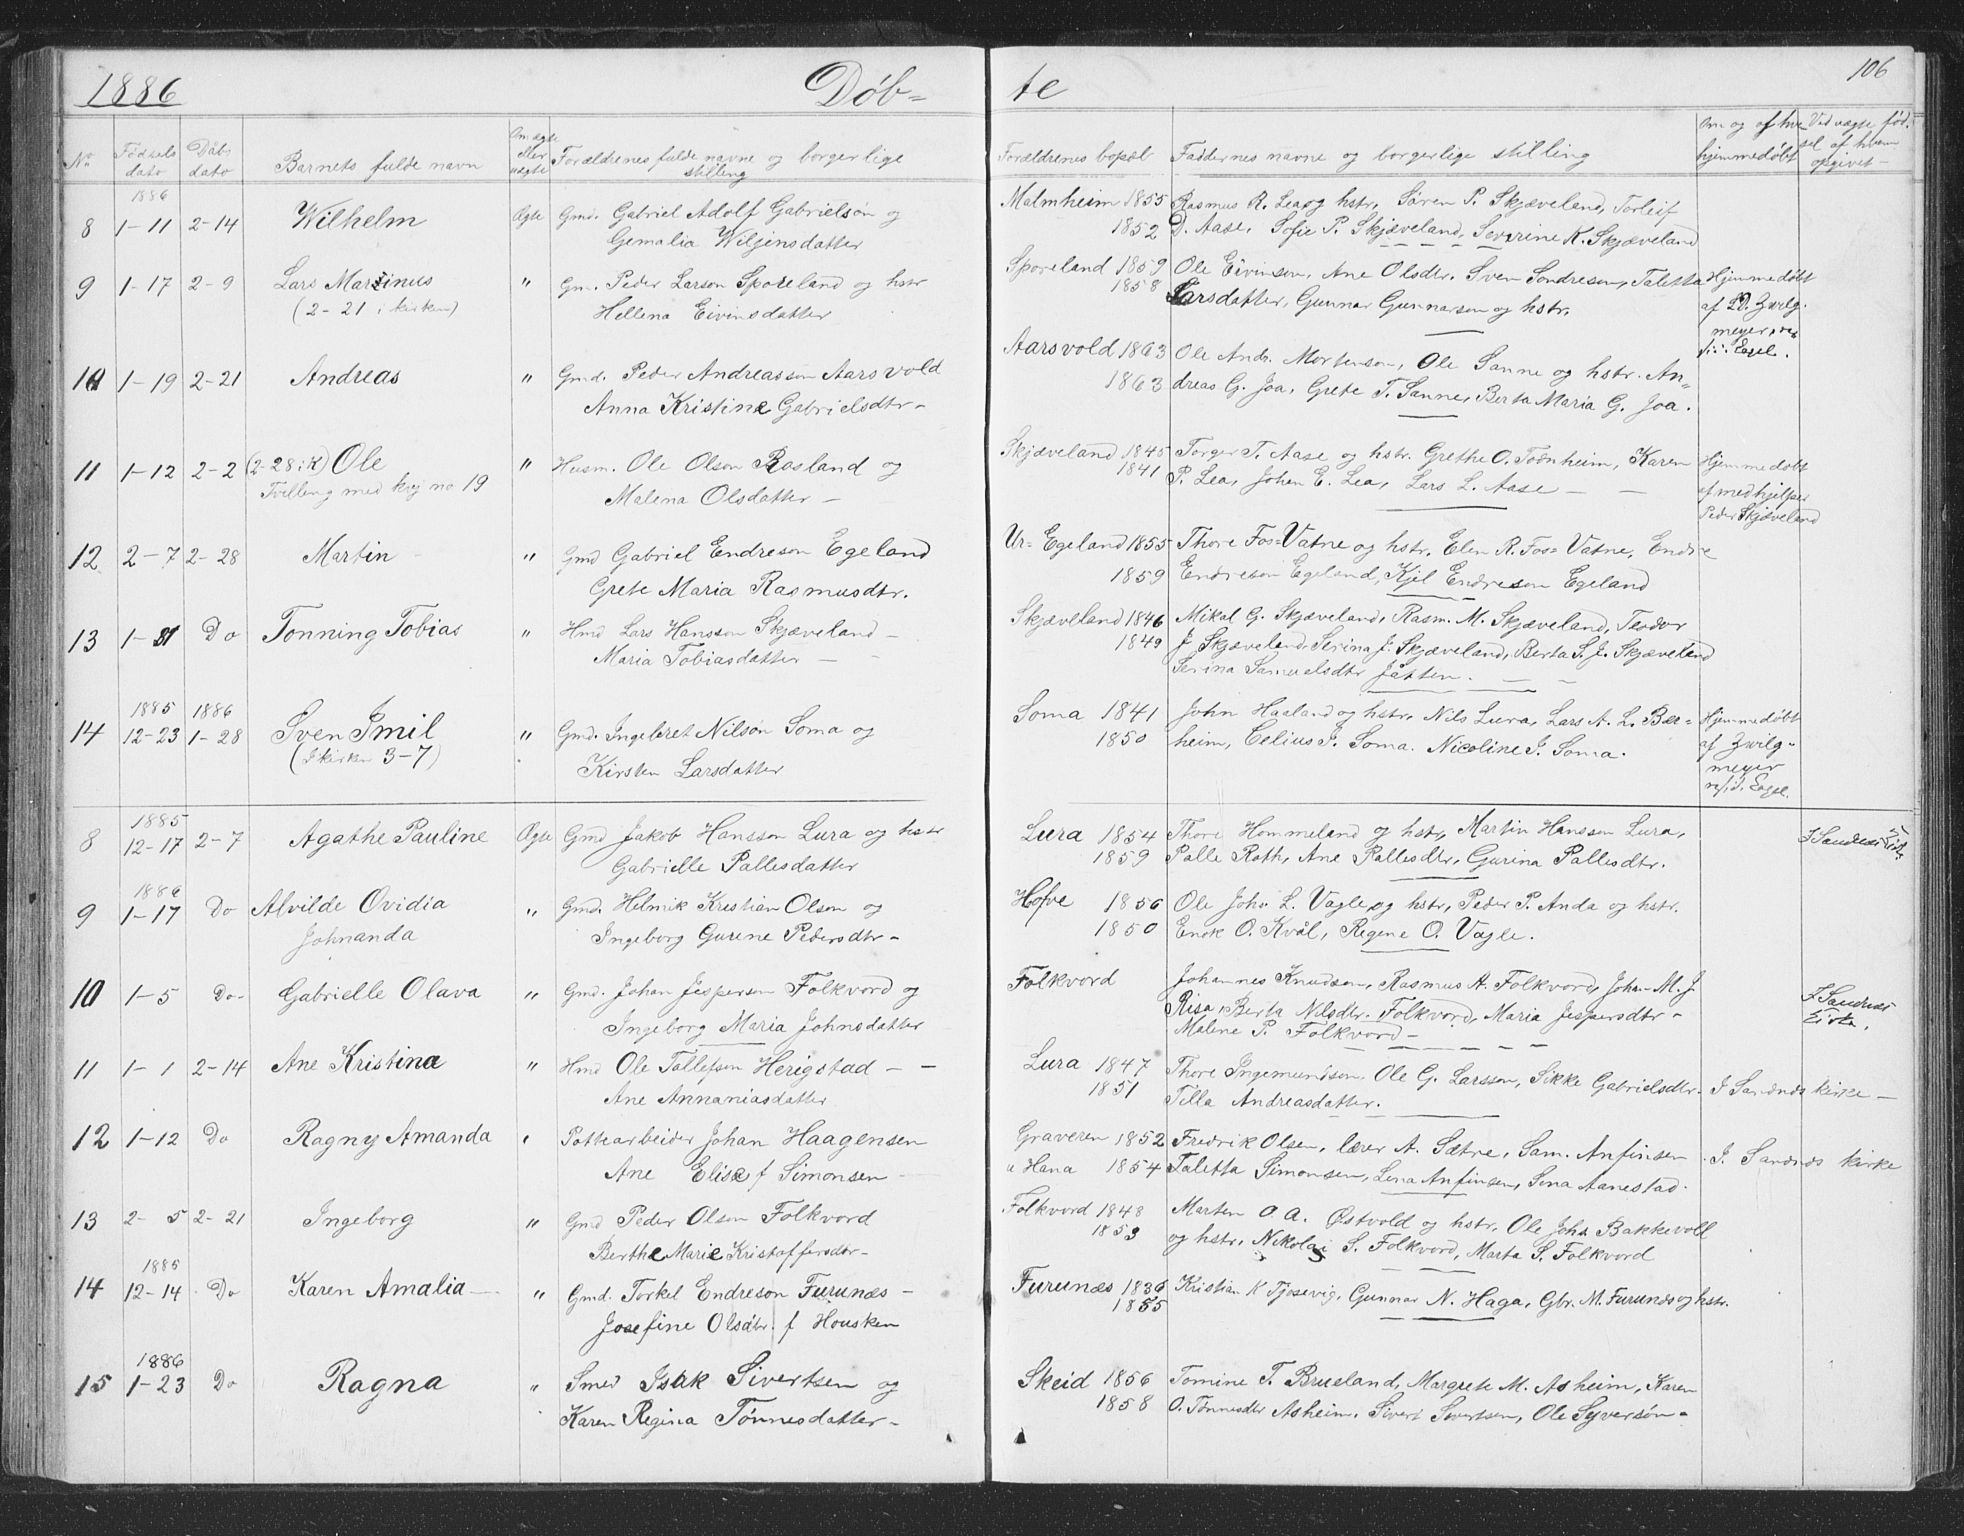 1886 Døb- te 106
No Fødsels dato Døbs dato Barnets fulde navn Om ægte eller uægte Forældrenes fulde navne og borgerlige stilling Forældrenes bopæl Faddernes navne og borgerlige stilling Om og af hvem hjemmedøbt Ved uægte fødsel af hvem opgivet
1886
8 1-11 2-14 Wilhelm Ægte Gmd. Gabriel Adolf Gabrielsøn og Malmheim 1855 Rasmus R. Lea og hstr, Søren P. Skjæveland, Torleif
Gemalia Wiljensdatter 1852 D. Aase, Sofie P. Skjæveland, Severine K. Skjæveland
9 1-17 2-9 Lars Martinus " Gm. Peder Larson Sporeland og hstr Sporeland 1859 Ole Eivinson, Ane Olsdtr. Sven Sondreson, Taletta Hjemmedøbt
(2-21 i kirken) Hellena Eivinsdatter 1858 Larsdatter, Gunnar Gunnarson og hstr. af D. Zwilg-
meyer, res
Kap.
10 1-19 2-21 Andreas " Gmd. Peder Andreasson Aarsvold Aarsvold 1863 Ole Andr. Mortenson, Ole Sanne og hstr. An-
Anna Kristine Gabrielsdtr- 1863 dreas G. Joa, Grete T. Sanne, Berta Maria G. Joa.
11 1-12 2-2 (2-28 i K) Ole " Husm. Ole Olson Rosland og Skjæveland 1845 Torger T. Aase og hstr. Grethe O. Todnheim, Karen Hjemmedøbt
Tvilling med kvj no 19 Malena Olsdatter - 1841 P. Lea, Johan E. Lea, Lars L. Aase - - af medhjelper
Peder Skjæveland
12 2-7 2-28 Martin " Gmd Gabriel Endreson Egeland Ur-Egeland 1855 Thore Fos-Vatne og hstr, Elen R. Fos-Vatne, Endre
Grete Maria Rasmusdtr. 1859 Endreson Egeland, Kjel Endreson Egeland
13 1-31 Do Tonning Tobias " Hmd Lars Hansson Skjæveland - Skjæveland 1846 Mikal G. Skjæveland, Rasm. M. Skjæveland, Teodor
Maria Tobiasdatter - 1849 J Skjæveland, Serina J. Skjæveland, Berta S. J. Skjæveland
Serina Samuelsdtr Jåtten.
1885 1886
14 12-23 1-28 Sven Emil " Gmd. Ingebret Nilson Soma og Soma 1841 John Haaland og hstr, Nils Lura, Lars A. L. Bær- Hjemmedøbt
(I kirken 3-7) Kirsten Larsdatter 1850 heim, Celius J. Soma. Nicoline J. Soma. af Zwilg-
meyer
res. Kap.
1885
8 12-17 2-7 Agathe Pauline Ægte Gmd Jakob Hansson Lura og hstr Lura 1854 Thore Hommeland og hstr, Martin Hanssen Lura, I Sandnes Kirke
Gabrielle Pallesdatter 1859 Palle Roth, Ane Pallesdtr, Gurina Pallesdtr.
1886
9 1-17 Do Alvilde Ovidia " Gmd. Helmik Kristian Olson og Hofve 1856 Ole Joh. L. Vagle og hstr, Peder P. Anda og hstr.
Johnanda Ingeborg Gurine Pedersdtr- 1850 Enok O. Kvål, Regene O. Vagle.
10 1-5 Do- Gabrielle Olava " Gmd. Johan Jesperson Folkvord og Folkvord Johannes Knudson, Rasmus A. Folkvord, Joha M. J. I Sandnæs
Ingeborg Maria Johnsdatter Risa, Berta Nilsdtr. Folkvord, Maria Jespersdtr- Kirke.
Malene P. Folkvord-
11 1-1 2-14 Ane Kristina " Hmd Ole Tollefson Herigstad - - Lura 1847 Thore Ingemundson, Ole G. Larsson, Sikke Gabrielsdtr. I Sandnæs kirke -
Ane Annaniasdatter 1851 Tilla Andreasdatter.
12 1-12 Do Ragny Amanda " Pottearbeider Johan Haagensen Graveren 1852 Fredrik Olsen, lærer A. Sætre, Sam. Anfinsen I. Sandnæs kirke
Ane Elise f Simonsen u Hana 1854 Taletta Simonsen, Lena Anfinsen, Sina Aanestad.
13 2-5 2-21 Ingeborg " Gmd Peder Olson Folkvord Folkvord 1848 Marten O A. Østvold og hstr, Ole Johs Bakkevoll
Berthe Marie Kristoffersdtr- 1853 og hstr. Nikolai S. Folkvord, Marta S. Folkvord
1885
14 12-14 Do Karen Amalia " Gmd. Torkel Endreson Furunæs - Furunæs 1836 Kristian K Tjosevig, Gunnar N. Haga, Gbr. M. Furunæs og hstr.
Josefine Olsdtr. f Housken 1855
1886
15 1-23 Do Ragna " Smed Isak Sivertsen og Skeid 1856 Tomine T. Brueland, Margrete M. Asheim, Karen
Karen Regina Tønnesdatter- 1858 O. Tønnesdtr Asheim. Sivert Sivertsen, Ole Syversøn-